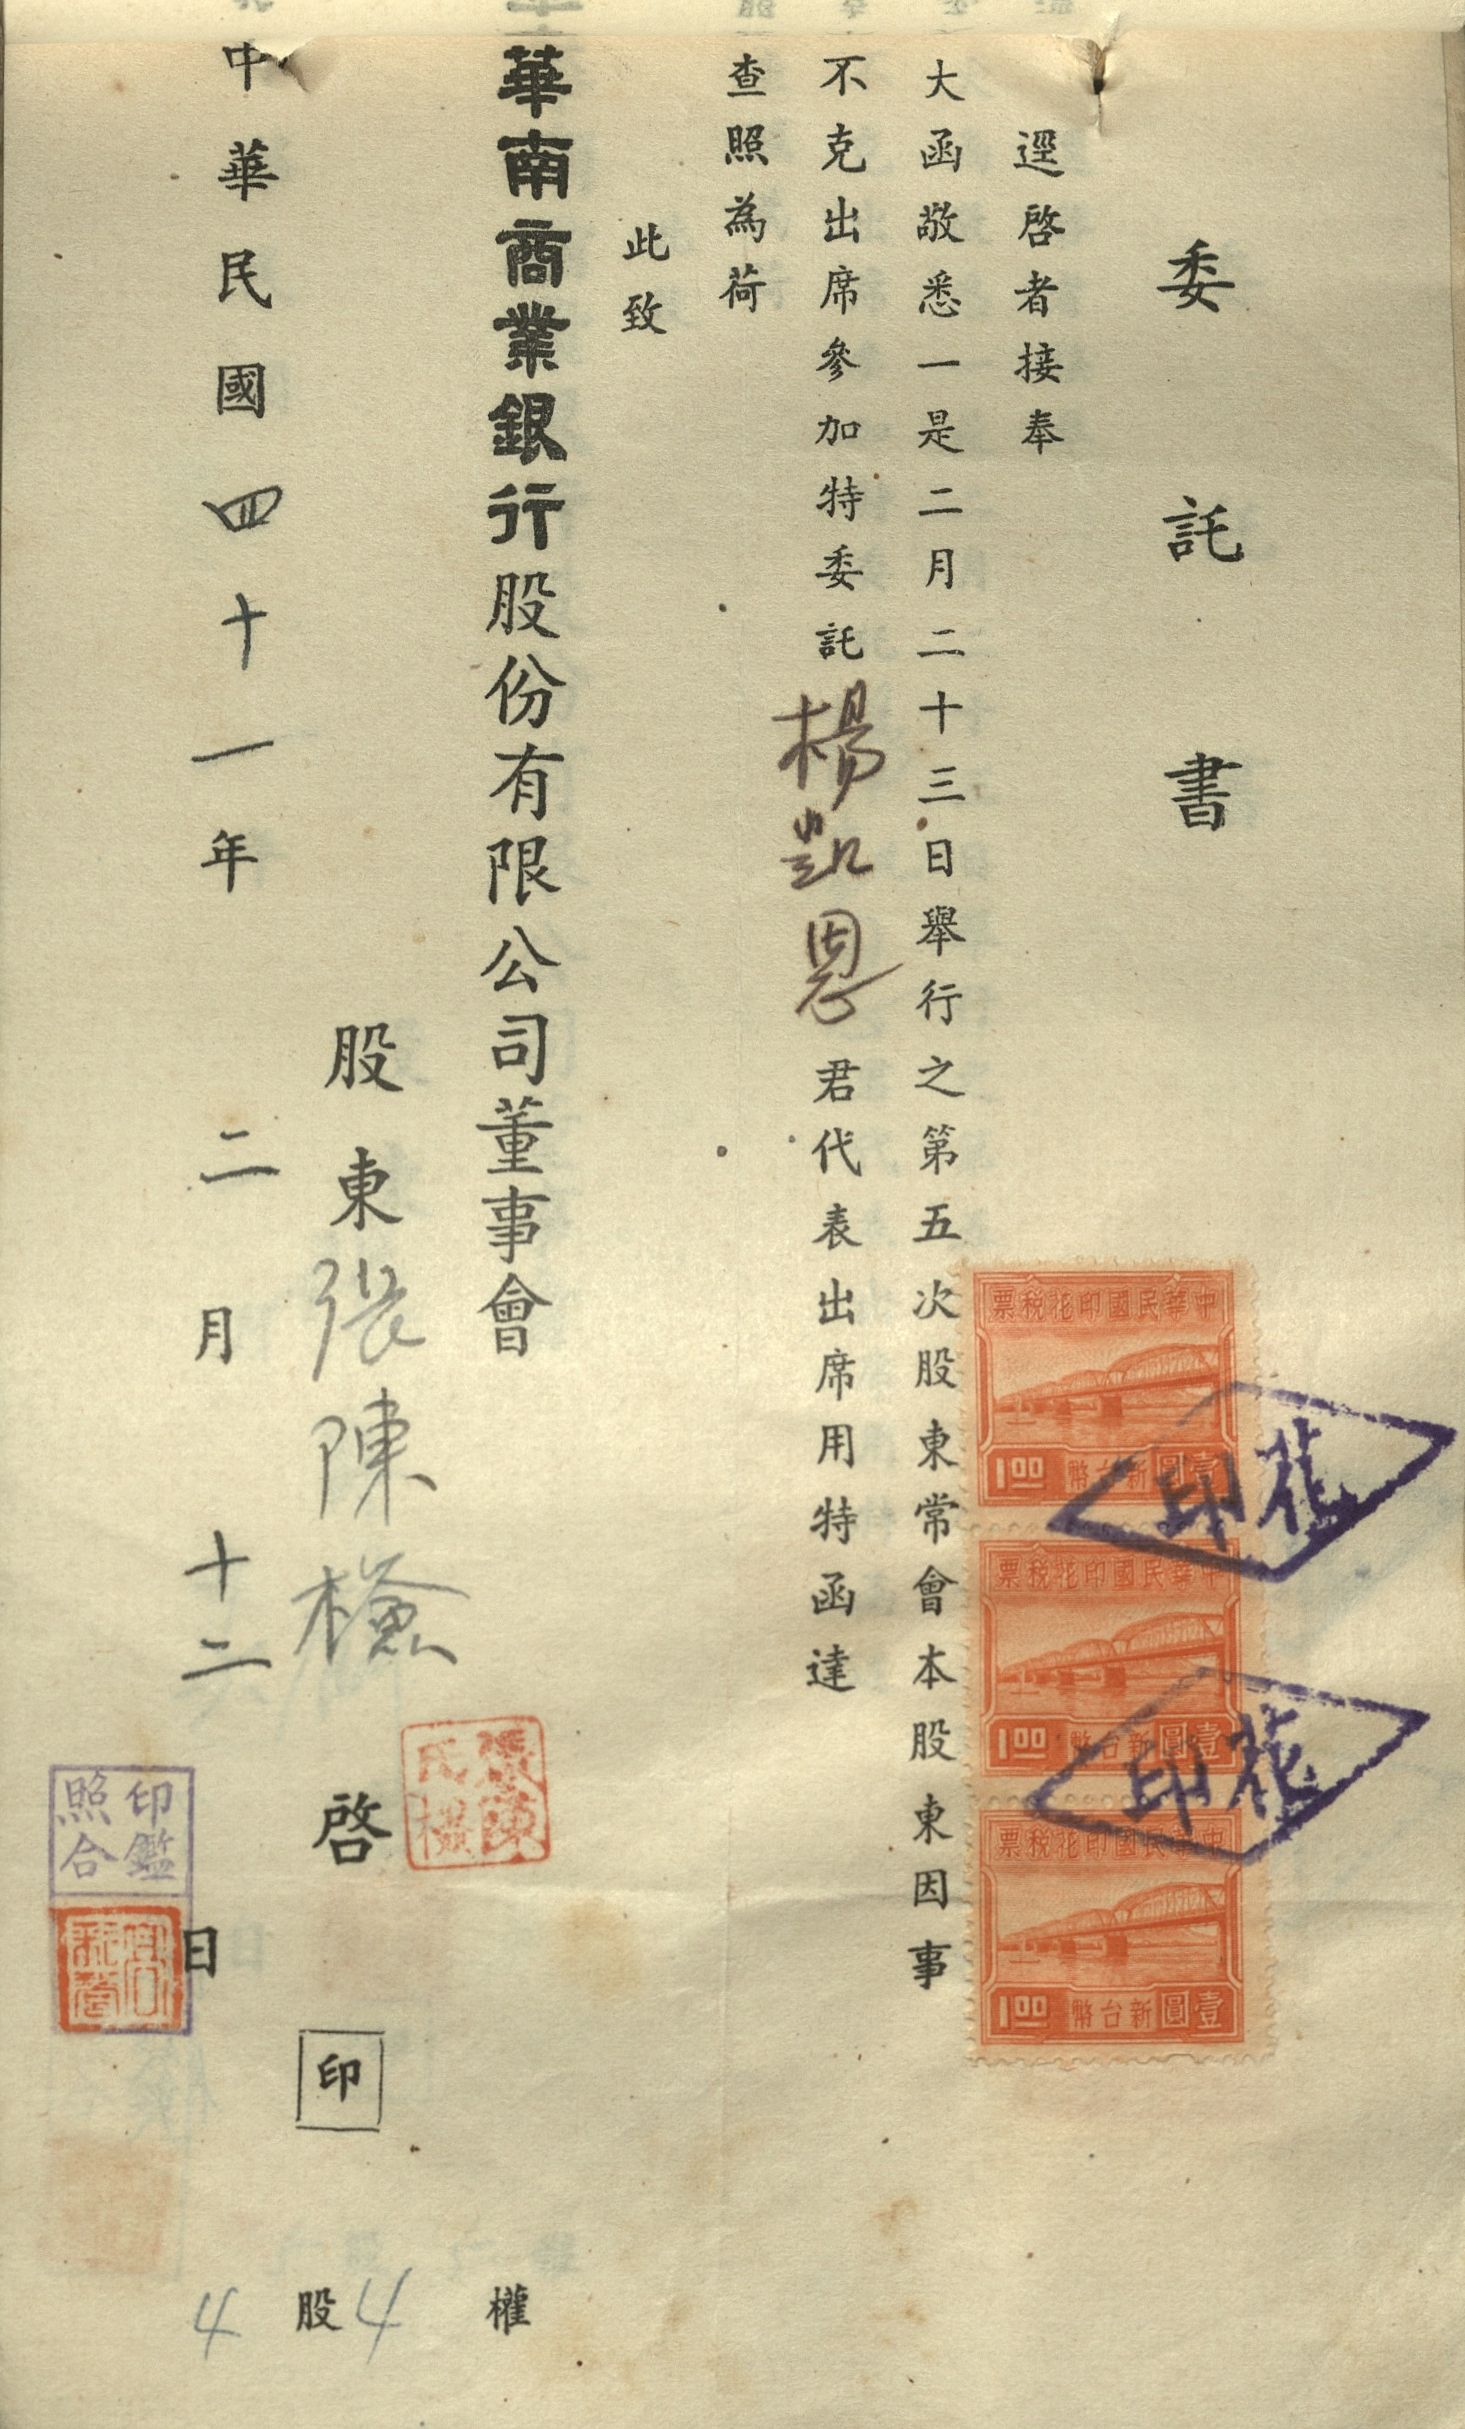 委託書
逕啓者接奉
大函敬悉一是二月二十三日舉行之第五次股東常會本股東因事
不克出席參加特委託楊凱恩君代表出席用特函達
查照為荷
此致
華南商業銀行股份有限公司董事會
股東張陳檢啓
印
中華民國四十一年二月十二日
4股4權
中華民國印花稅票
1.00
新台幣壹圓
中華民國印花稅票
1.00
新台幣壹圓
中華民國印花稅票
1.00
新台幣壹圓
印花
印花
張陳
氏
印鑑
照合